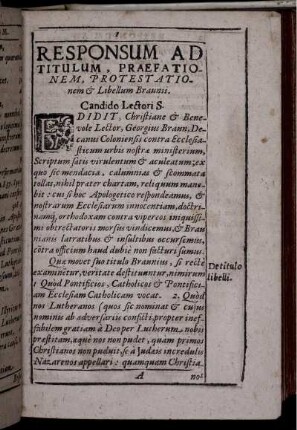 1
RESPONSUM AD
TITULUM, PRAEFATIO-
NEM, PROTESTATIO-
nem & Libellum Braunii.
Candido Lectori S.
EDIDIT, Christiane & Bene-
vole Lector, Georgius Braun, De-
canus Coloniensis contra Ecclesia-
sticum urbis nostræ ministerium,
Scriptum satis virulentum & aculeatum; ex
quo sic mendacia, calumnias & scommata
tollas, nihil præter chartam, reliquum mane-
bit: cui si hoc Apologetico respondeamus, &
nostrarum Ecclesiarum innocentiam, doctri-
namq́; orthodoxam contra vipereos iniquissi-
mi obtrectatoris morsus vindicemus, & Brau-
nianis latratibus & insultibus occursemus,
extra officium haud dubiè non facturi sumus.
Quæ movet sui titulo Braunius, si recte
examinẽtur, veritate destituuntur, nimirum
1 Quod Pontificios, Catholicos & Pontifici-
am Ecclesiam Catholicam vocat. 2. Quod
nos Lutheranos (quos sic nominat & cujus
nominis ab adversariis conficti, propter inef-
fabilem gratiam à Deo per Lutherum nobis
præstitam, æquè nos non pudet, quam primos
Christianos non puduit, se à Judæis incredulis
Nazarenos appellari: quamquam Christia-
A
no-
De titulo
libelli.